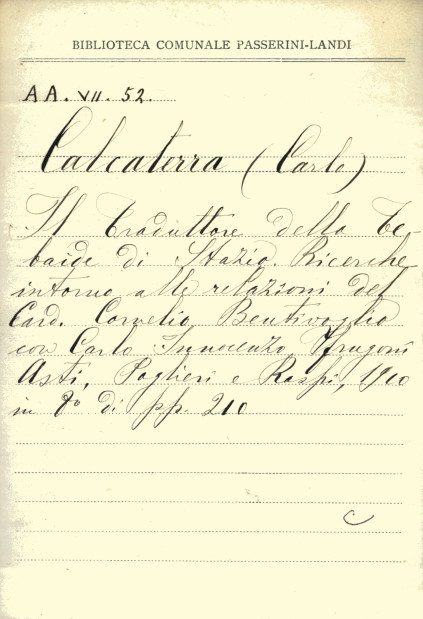 BIBLIOTECA COMUNALE PASSERINI-LANDI
AA. VII. 52.
Calcaterra (Carlo)
Il traduttore della Te-
baide di Stazio. Ricerche
intorno alle relazioni del
Card. Cornelio Bentivoglio
con Carlo Innocenzo Frugoni
Asti, Paglieri e Raspi, 1910
in 8° di pp. 210
C